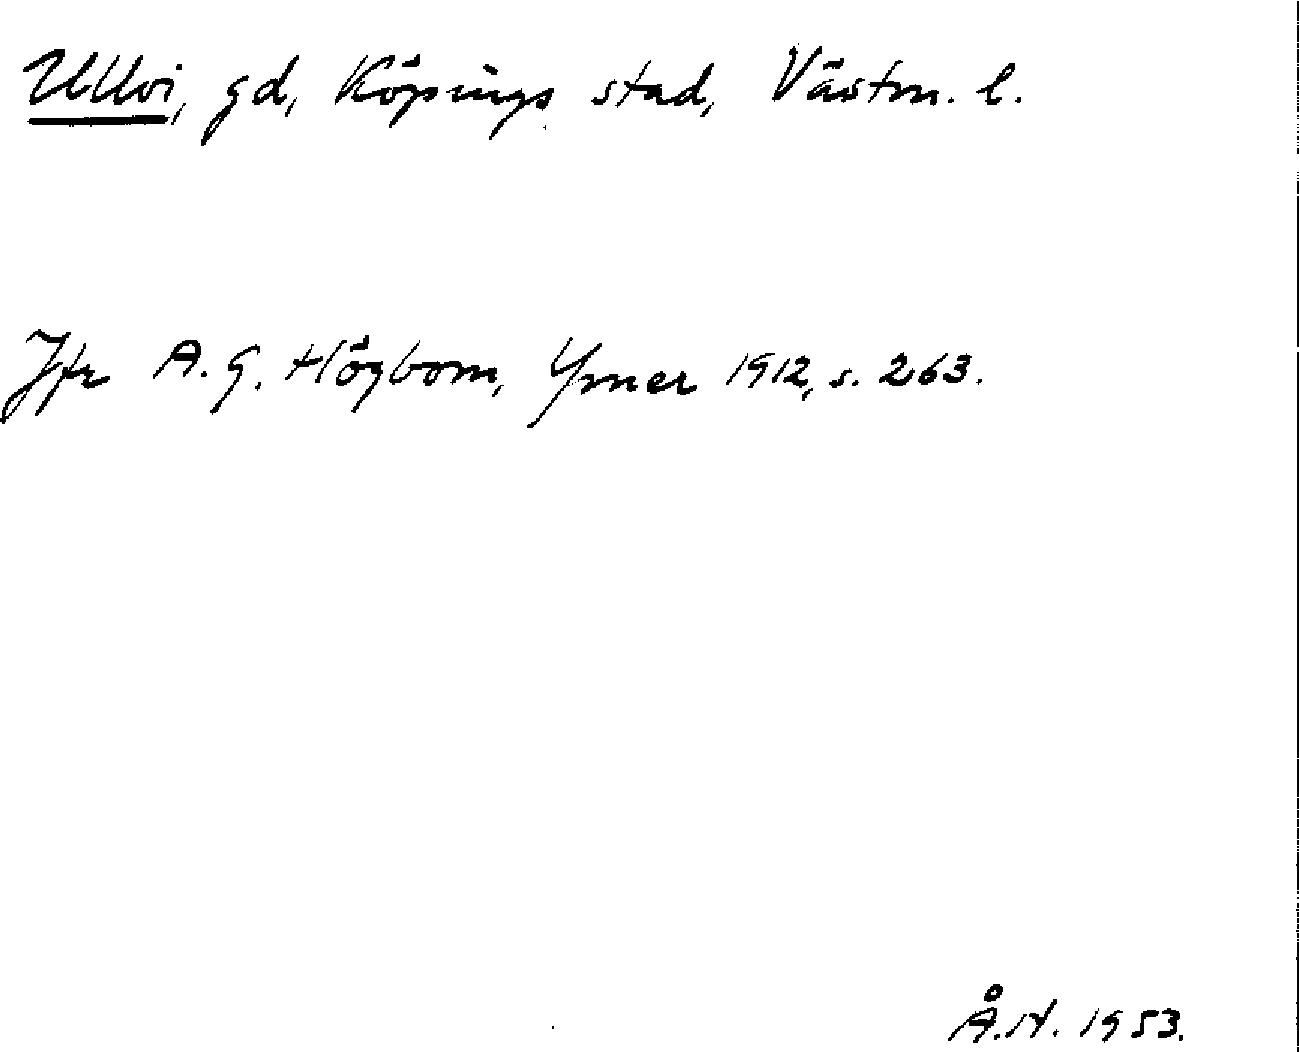 Ullvi, gd, Köpings stad, Västm. l.
Jfr A. G. Högbom, Ymer 1912, s. 263.
Å.N. 1953.